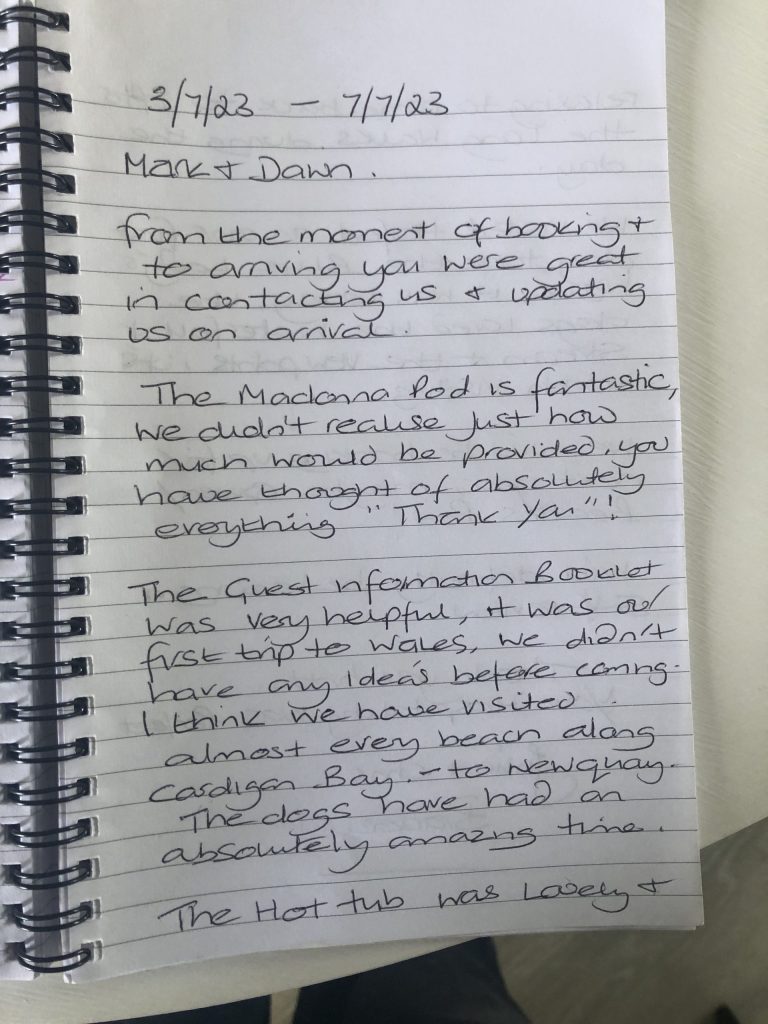 3/7/23 — 7/7/23
Mark + Dawn.
from the moment of booking +
to arriving you were great
in contacting us + updating
us on arrival.
The Madonna Pod is fantastic,
we didn't realise just how
much would be provided, you
have thought of absolutely
everything "Thank You"!
The Guest nformation Booklet
was very helpful, it was our
first trip to Wales, we didn't
have any Idea's before coming.
I think we have visited
almost every beach along
Cardigan Bay. - to Newquay.
The dogs have had an
absolutely amazing time.
The Hot tub was Lovely +